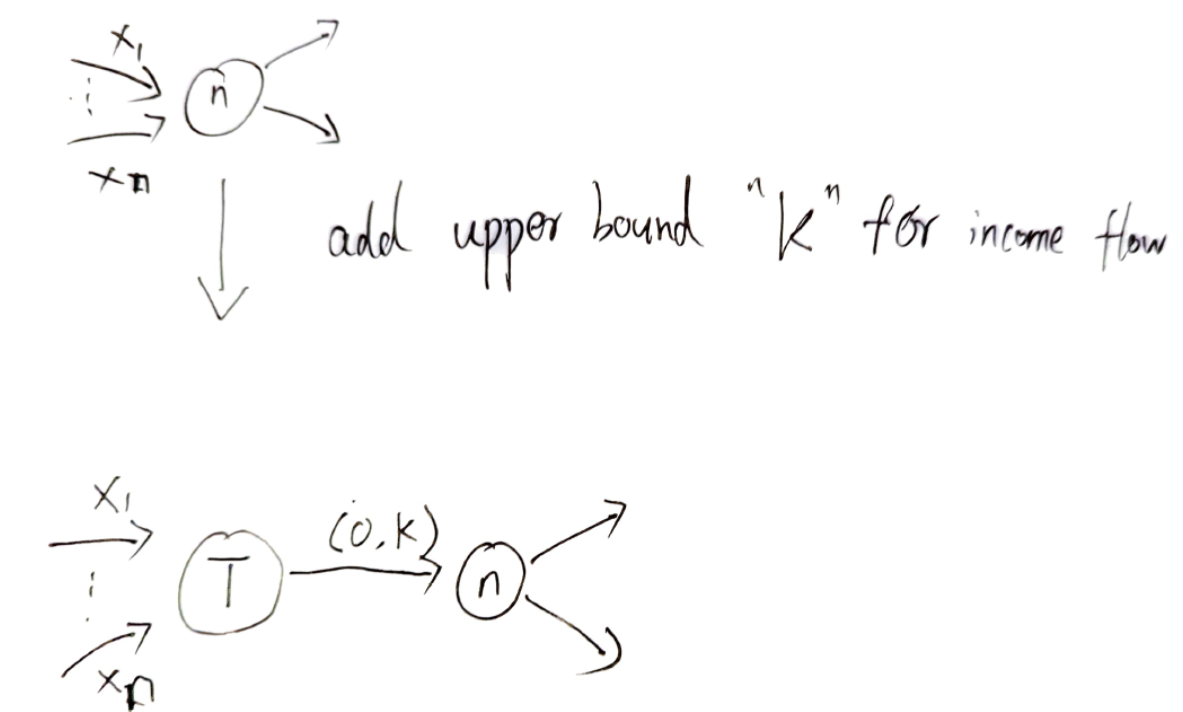 X₁
n
xn
add upper bound "K" for income flow
X₁
(0,K)
T
n
xn